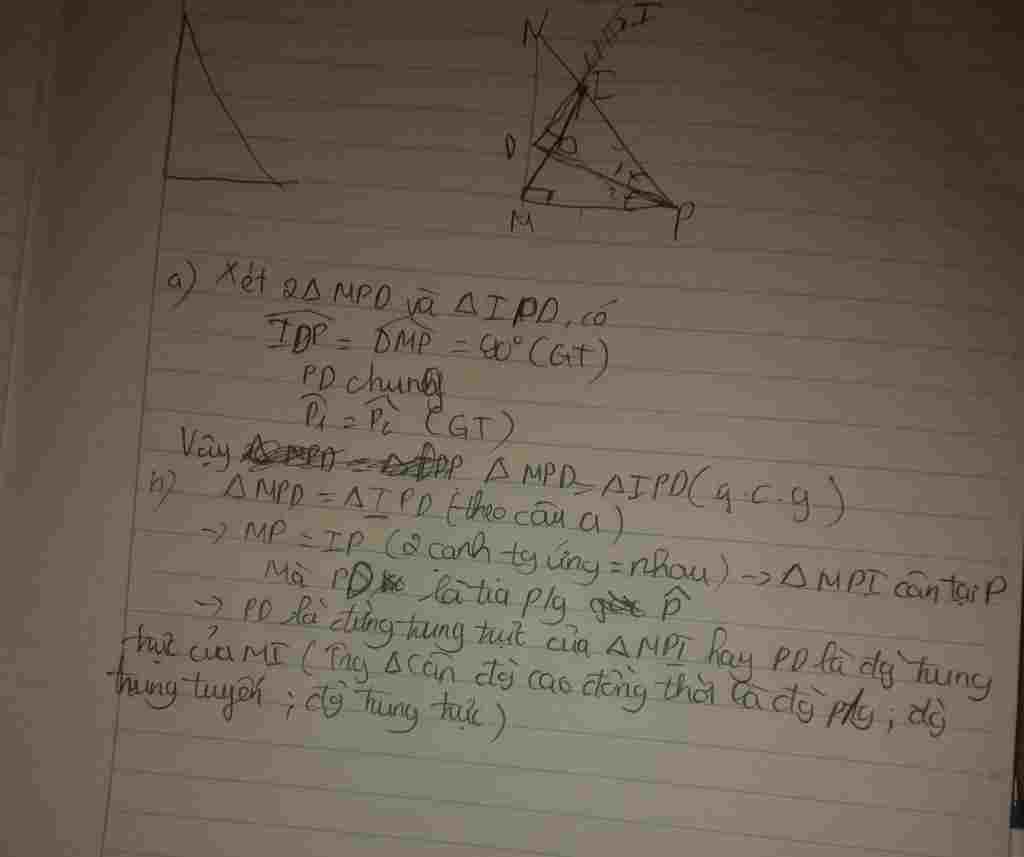 N
I
I
D
1
2
M
P
a) Xét 2Δ MPD và Δ IPD, có
IDP = DMP = 90° (GT)
PD chung
P1 = P2 (GT)
Vậy Δ MPD = Δ IPD (g.c.g)
b) Δ MPD = Δ IPD (theo câu a)
→ MP = IP (2 cạnh tg ứng = nhau) → Δ MPI cân tại P
Mà PD là tia p/g P
→ PD là đường trung trực của Δ MPI hay PD là đg trung
trực của MI (Trg Δ cân đg cao đồng thời là đg p/g; đg
trung tuyến; đg trung trực)